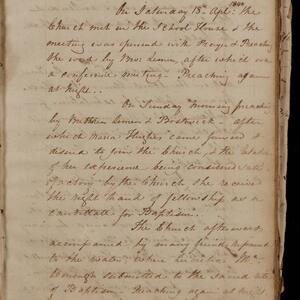 On Saturday 18th Apl. the
Church met in the School House & the
meeting was opened with Prayer & Preach
the word by Bro. Lemen, after which was
a conference meeting. Preaching again
at Night.
On Sunday Morning preach
by Brethren Lemen & Bostwick - after
which Maria Hughes came forward &
desired to join the Church, & the relation
of her experience being considered satis
factory by the Church she received
the right hand of fellowship as a
candidate for Baptism.
The Church afterward
accompanied by many friends repaired
to the water, where
submitted to the sacred rite
of Baptism. Preaching again at night